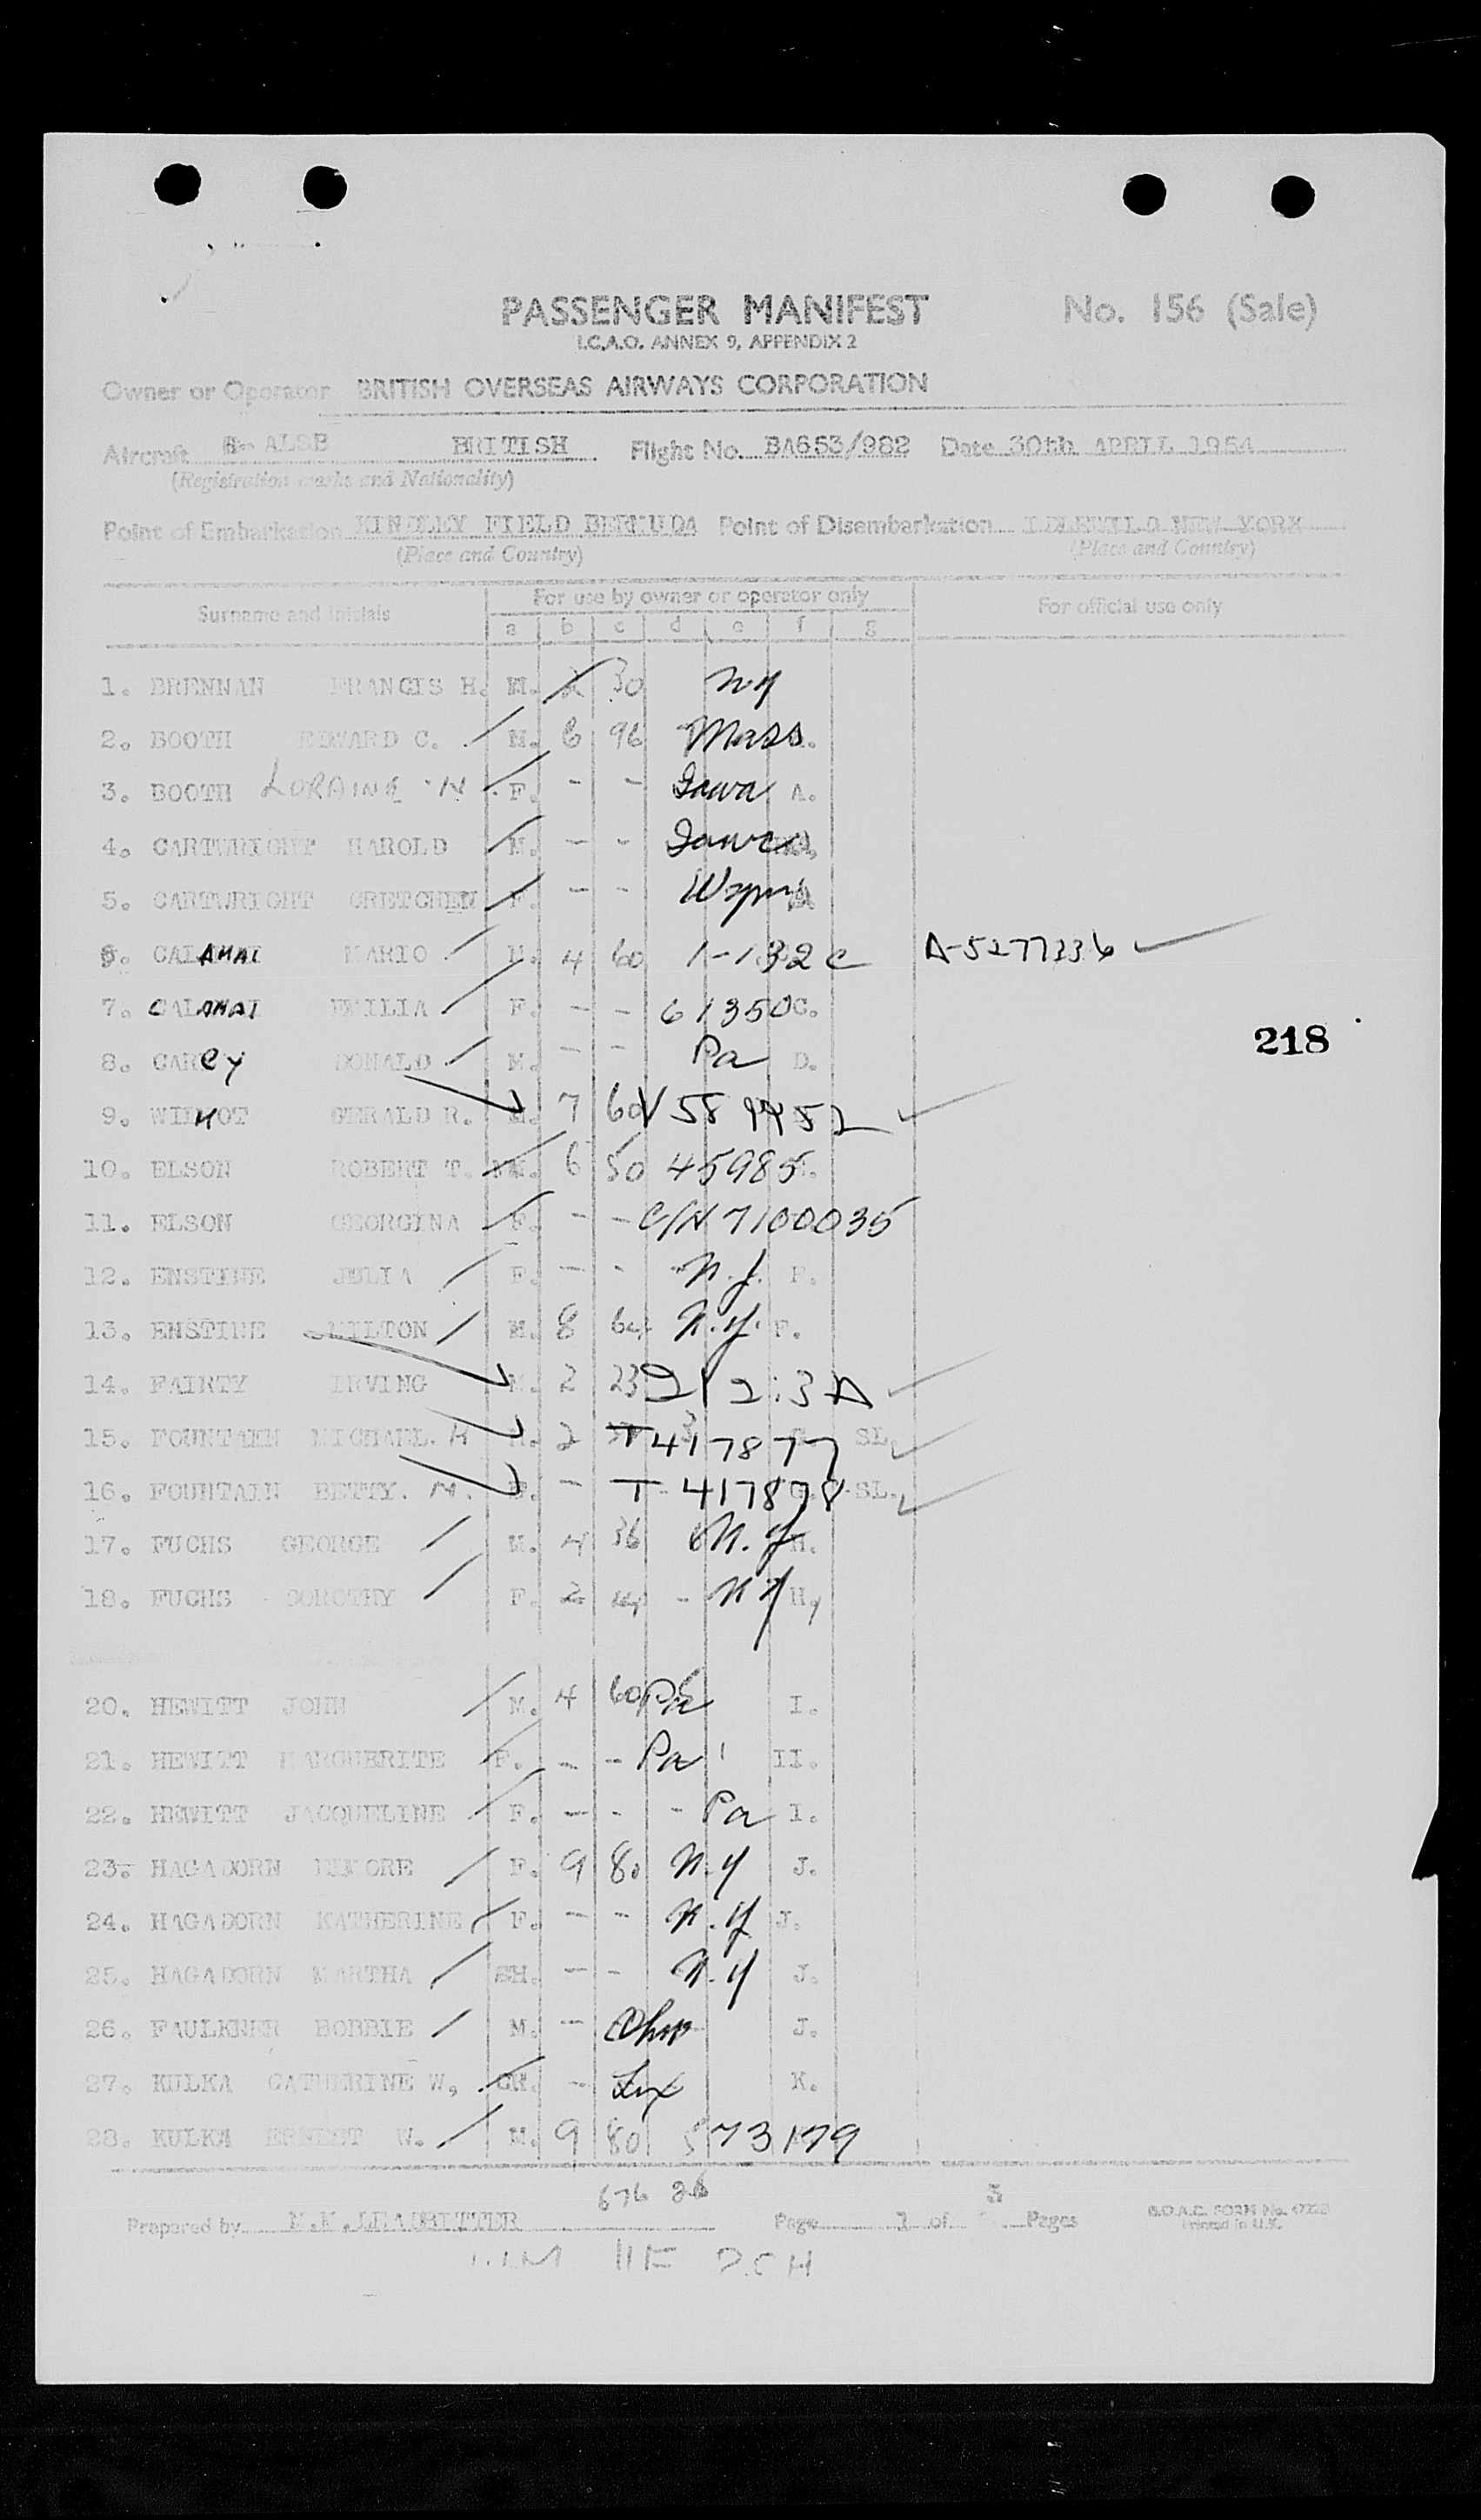 PASSENGER MANIFEST No. 156 (Sale)
I.C.A.O. ANNEX 9, APPENDIX 2
Owner or Operator BRITISH OVERSEAS AIRWAYS CORPORATION
Aircraft BRITISH Flight No. BA653/982 Date 30th APRIL 1954
(Registration marks and Nationality)
Point of Embarkation KINDLEY FIELD BERMUDA Point of Disembarkation IDLEWILD NEW YORK
(Place and Country) (Place and Country)
Surname and Initials For use by owner or operator only For official use only
a b c d e f g
1. BRENNAN FRANCIS H. M. 2 30 N.Y
2. BOOTH EDWARD C. M. 6 96 Mass.
3. BOOTH LORAINE N F. - - Iowa A.
4. CARTWRIGHT HAROLD M. - - Iowa
5. CARTWRIGHT GRETCHEN F. - -
6. CALAMAI MARIO M. 4 60 1-132c A-5277336
7. CALAMAI EMILIA F. - - 61350 C.
218
8. CAREY DONALD M. - - Pa D.
9. WILMOT GERALD R. M. 7 60 V589452
10. ELSON ROBERT T. M. 6 50 45985
11. ELSON GEORGINA F. - - C/N 7100035
12. ENSTINE JULIA F. - - N.J. F.
13. ENSTINE MILTON M. 8 64 N.Y. F.
14. FAIRTY IRVING M. 2 23 212:3A
15. FOUNTAIN MICHAEL. H M. 2 T417877 SL.
16. FOUNTAIN BETTY. N. F. - T-417878 SL.
17. FUCHS GEORGE M. 4 36 N.Y H.
18. FUCHS DOROTHY F. 2 - NY H,
20. HEWITT JOHN M. 4 60 Pa I.
21. HEWITT MARGUERITE F. - - Pa II.
22. HEWITT JACQUELINE F. - - - Pa I.
23. HAGADORN F. 9 80 N.Y J.
24. HAGADORN KATHERINE F. - - N.Y J.
25. HAGADORN MARTHA CH. - - N.Y J.
26. FAULKNER BOBBIE M. - Ohio J.
27. KULKA CATHERINE W, CH. - Tex K.
28. KULKA ERNEST W. M. 9 80 573179
676 86
Prepared by N.N.LEADBITTER Page 1 of 3 Pages
B.O.A.C. FORM No.
Printed in U.K.